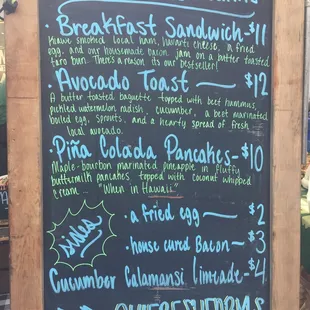 • Breakfast Sandwich - $11
Kiawe smoked local ham, havarti cheese, a fried
egg, and our housemade bacon jam on a butter toasted
taro bun. There's a reason its our bestseller!
• Avocado Toast — $12
A butter toasted baguette topped with beet hummus,
pickled watermelon radish, cucumber, a beet marinated
boiled egg, sprouts, and a hearty spread of fresh
local avocado.
Piña Colada Pancakes - $10
Maple-bourbon marinated pineapple in fluffy
buttermilk pancakes topped with coconut whipped
cream... "When in Hawaii..."
sides
• a fried egg — $2
• house cured Bacon - $3
Cucumber Calamansi limeade - $4